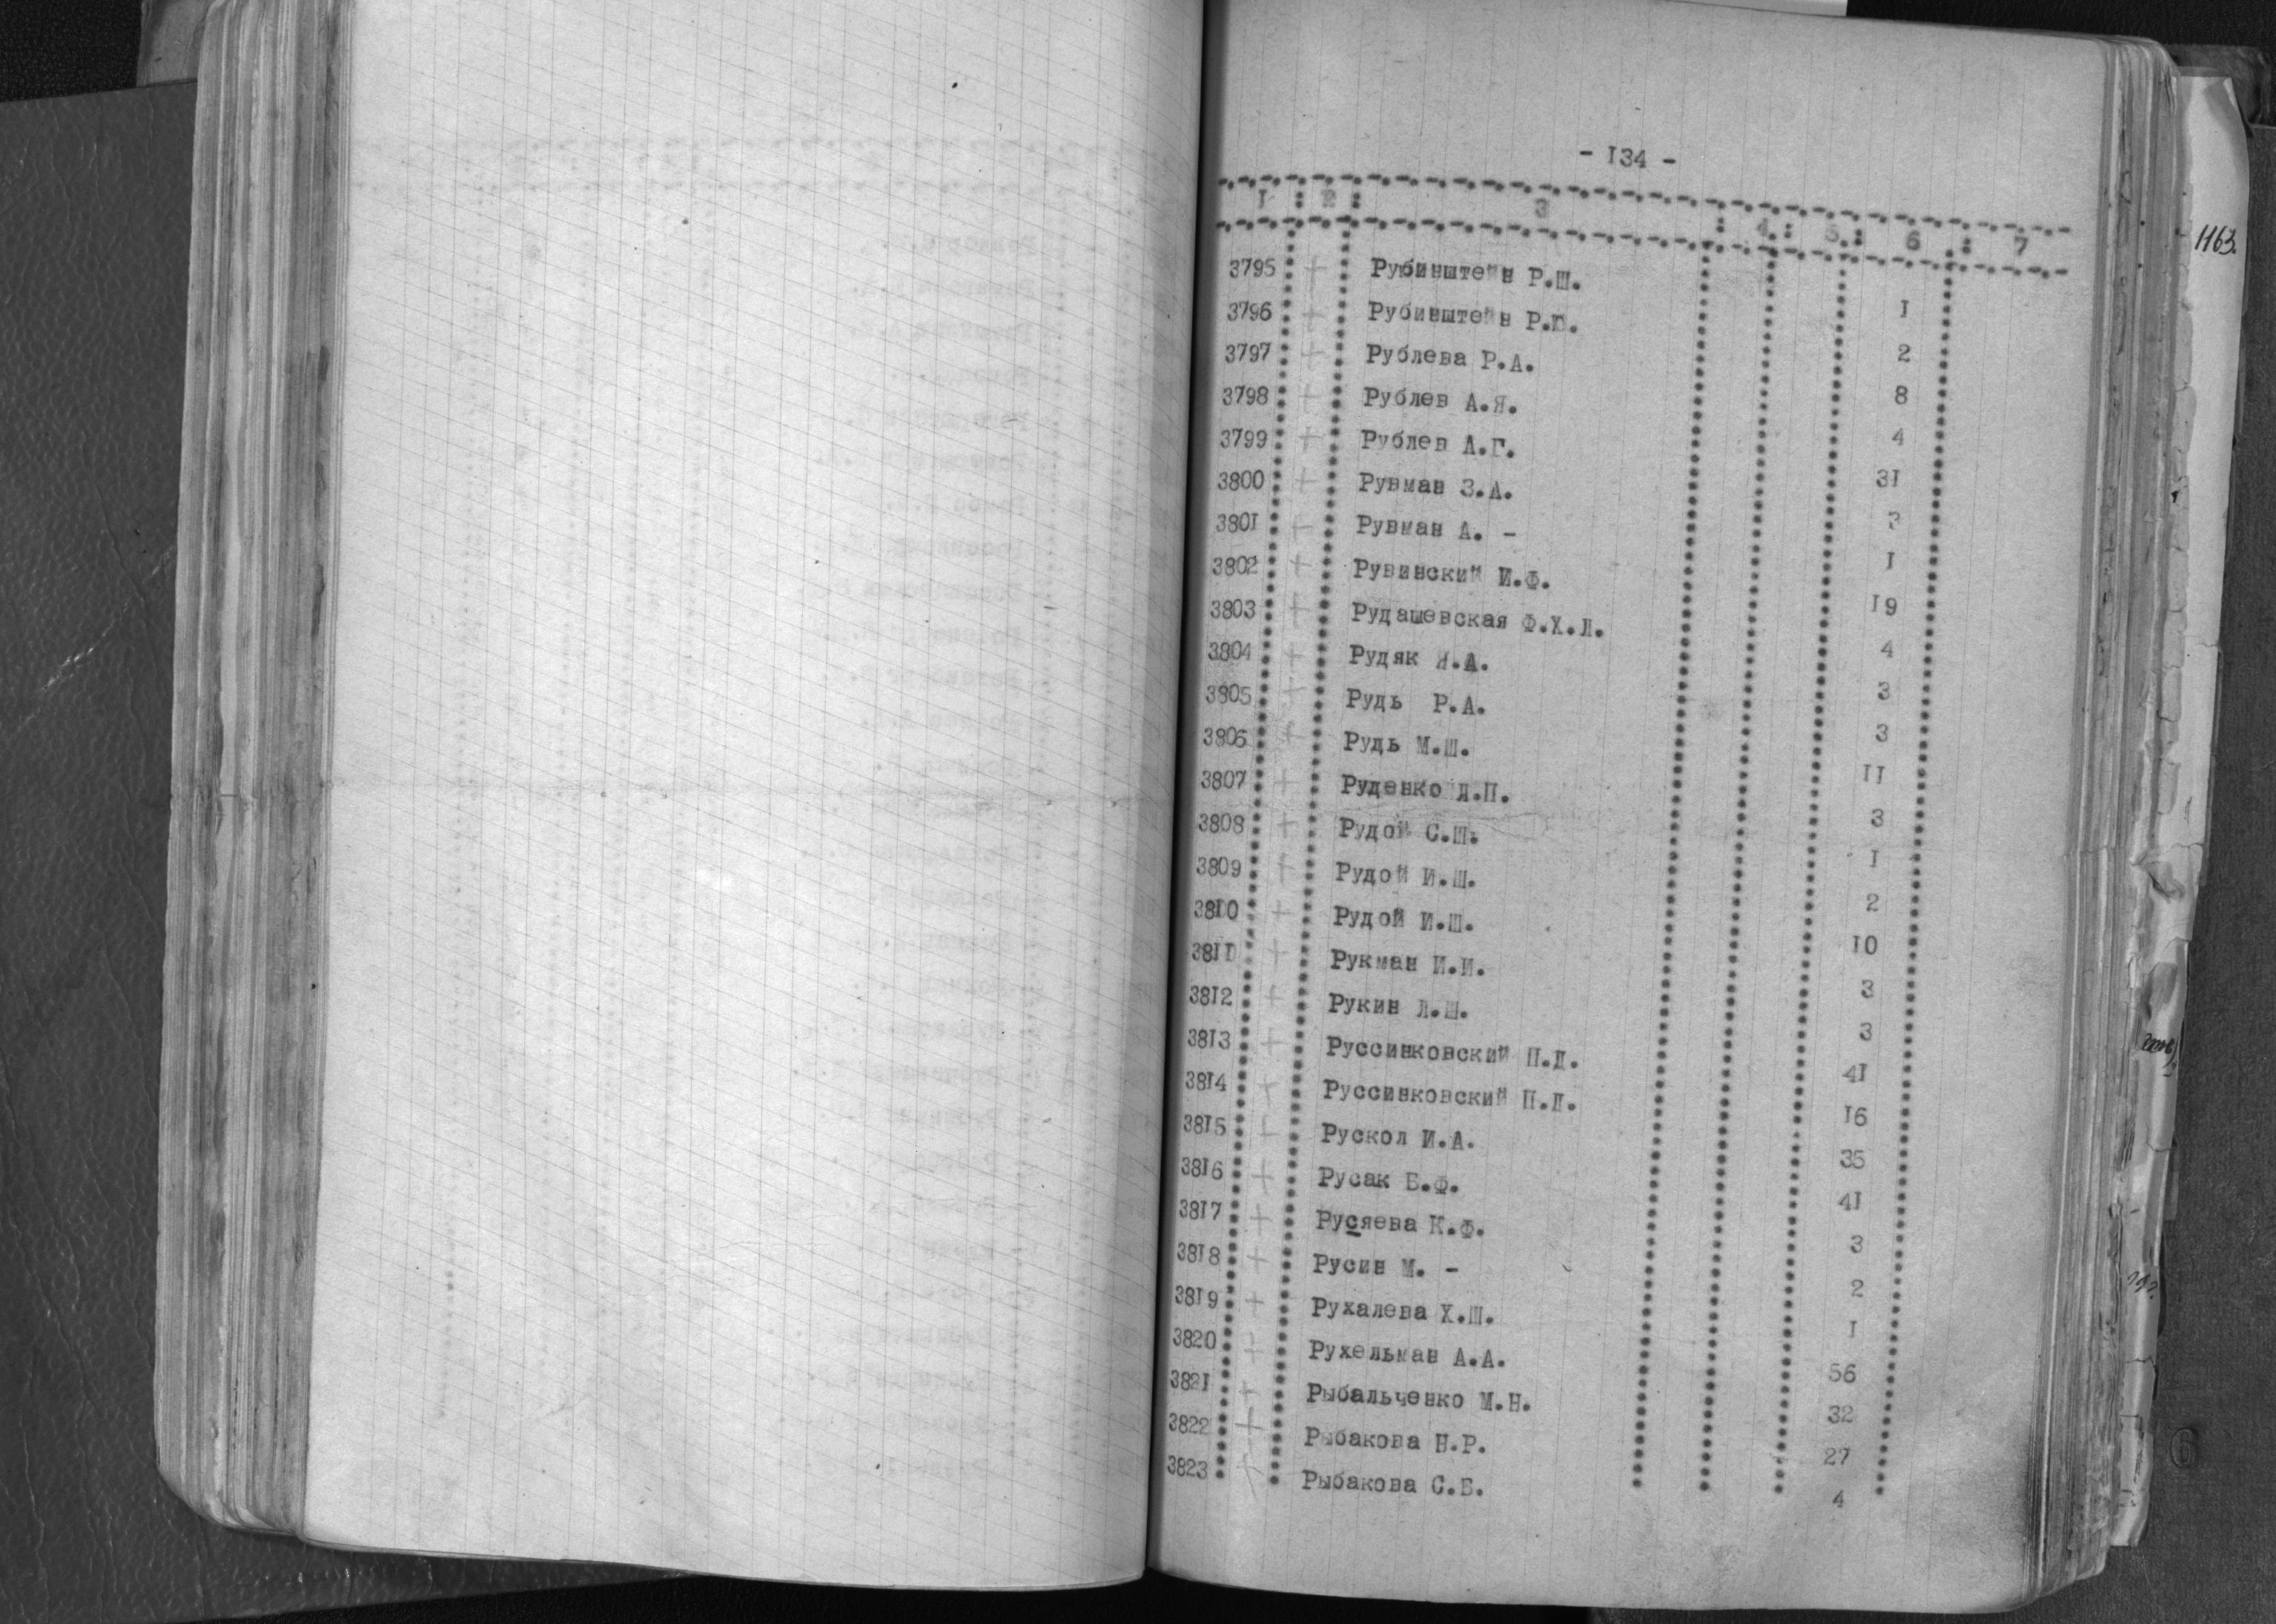 - I34 -
I : 2 : 3 : 4 : 5 : 6 : 7
3795 + Рубинштейн Р.Ш. I
3796 + Рубинштейн Р.Ю. 2
3797 + Рублева Р.А. 8
3798 + Рублев А.Я. 4
3799 + Рублев А.Г. 3I
3800 + Рувман З.А. 3
380I + Рувман А. - I
3802 + Рувинский И.Ф. I9
3803 + Рудашевская Ф.Х.Л. 4
3804 + Рудяк Я.А. 3
3805 + Рудь Р.А. 3
3806 + Рудь М.Ш. II
3807 + Руденко Л.П. 3
3808 + Рудой С.Ш. I
3809 + Рудой И.Ш. 2
38I0 + Рудой И.Ш. I0
38II + Рукман И.И. 3
38I2 + Рукин Л.Ш. 3
38I3 + Руссинковский П.Д. 4I
38I4 + Руссинковский П.Д. I6
38I5 + Рускол И.А. 35
38I6 + Русак Б.Ф. 4I
38I7 + Русяева К.Ф. 3
38I8 + Русин М. - 2
38I9 + Рухалева Х.Ш. I
3820 + Рухельман А.А. 56
382I + Рыбальченко М.Н. 32
3822 + Рыбакова Н.Р. 27
3823 + Рыбакова С.Б. 4
1163.